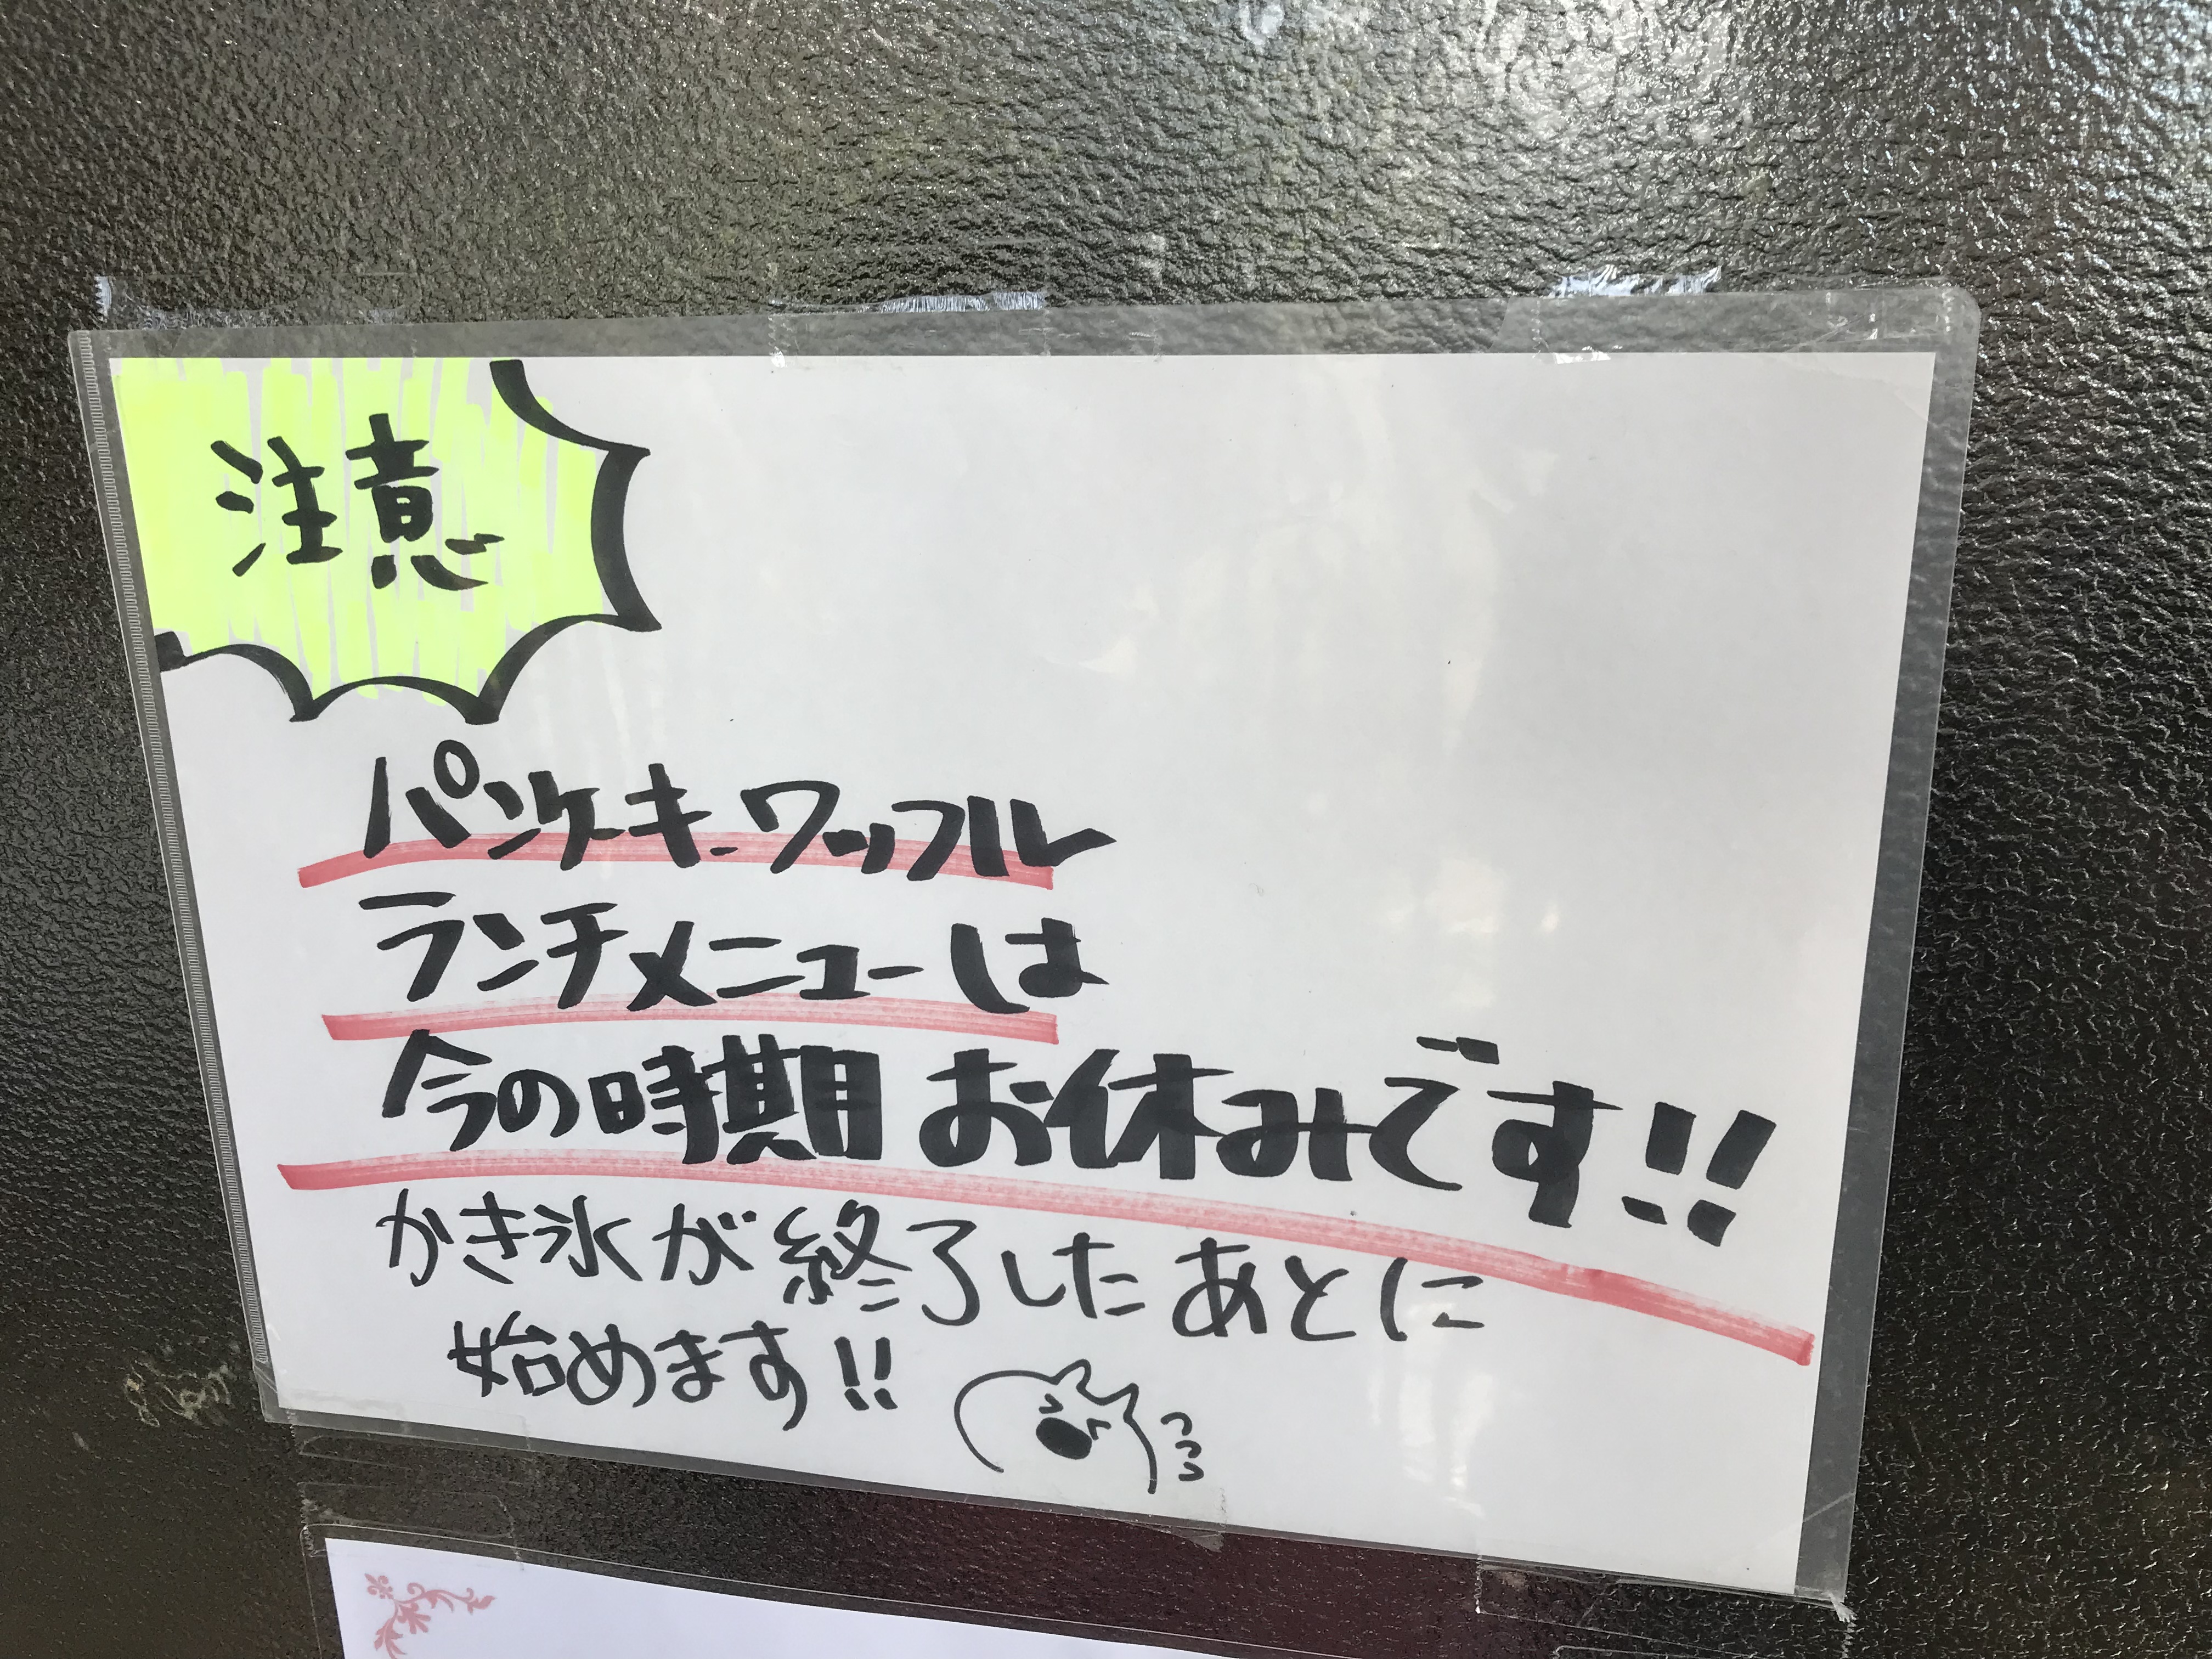 注意
パンケーキ、ワッフル
ランチメニューは
今の時期 お休みです!!
かき氷が終了したあとに
始めます!!